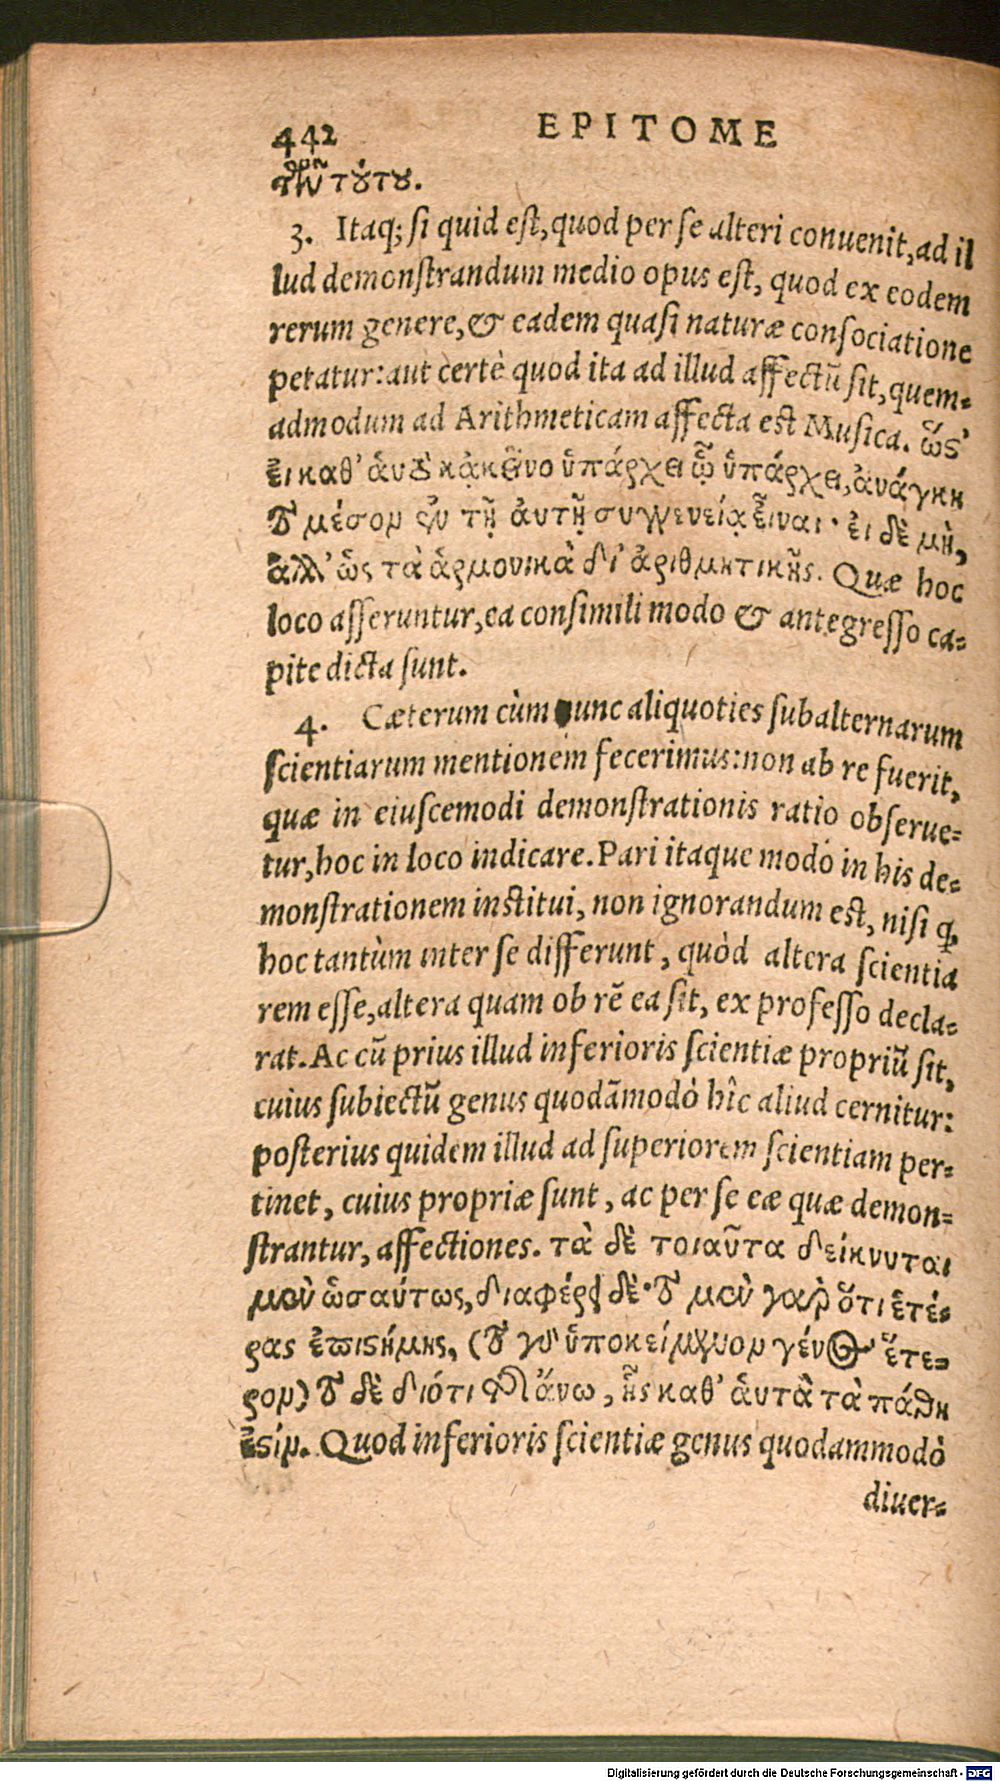 442 EPITOME
τὴν τούτου.
3. Itaq; si quid est, quod per se alteri conuenit, ad il
lud demonstrandum medio opus est, quod ex eodem
rerum genere, & eadem quasi naturæ consociatione
petatur: aut certè quod ita ad illud affectū sit, quem-
admodum ad Arithmeticam affecta est Musica. ὥστ'
εἰ καθ' αὑτὸ κἀκεῖνο ὑπάρχει ᾧ ὑπάρχει, ἀνάγκη
τὸ μέσον ἐν τῇ αὐτῇ συγγενείᾳ εἶναι· εἰ δὲ μὴ,
ἀλλ' ὡς τὰ ἁρμονικὰ δι' ἀριθμητικῆς. Quæ hoc
loco asseruntur, ea consimili modo & antegresso ca-
pite dicta sunt.
4. Cæterum cùm nunc aliquoties subalternarum
scientiarum mentionem fecerimus: non ab re fuerit,
quæ in eiuscemodi demonstrationis ratio obserue-
tur, hoc in loco indicare. Pari itaque modo in his de-
monstrationem institui, non ignorandum est, nisi q,
hoc tantùm inter se differunt, quòd altera scientia
rem esse, altera quam ob rē ea sit, ex professo decla-
rat. Ac cū prius illud inferioris scientiæ propriū sit,
cuius subiectū genus quodāmodò hîc aliud cernitur:
posterius quidem illud ad superiorem scientiam per-
tinet, cuius propriæ sunt, ac per se eæ quæ demon-
strantur, affectiones. τὰ δὲ τοιαῦτα δείκνυται
μὲν ὡσαύτως, διαφέρει δὲ· τὸ μὲν γὰρ ὅτι ἑτέ-
ρας ἐπιστήμης, (τὸ γὰρ ὑποκείμενον γένος ἕτε-
ρον) τὸ δὲ διότι τῆς ἄνω, ἧς καθ' αὑτὰ τὰ πάθη
ἐστίν. Quod inferioris scientiæ genus quodammodò
diuer-
Digitalisierung gefördert durch die Deutsche Forschungsgemeinschaft - DFG